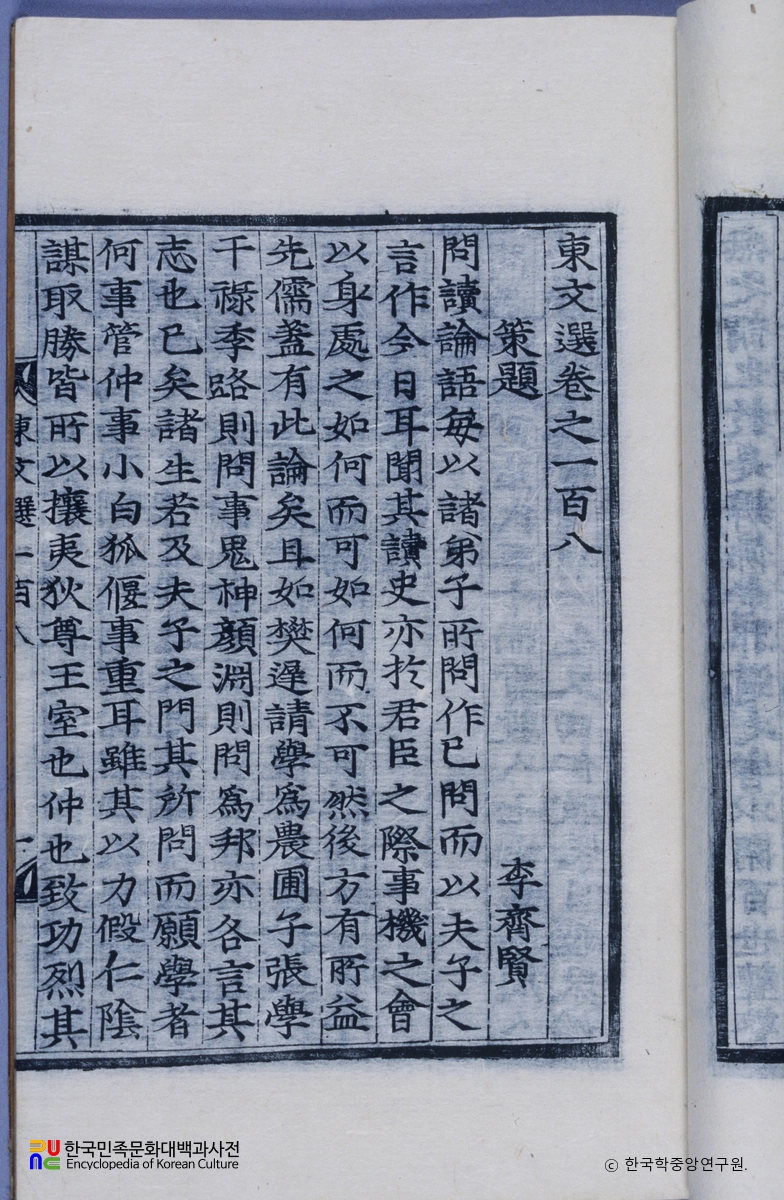 東文選卷之一百八
策題 李齊賢
問讀論語每以諸弟子所問作已問而以夫子之
言作今日耳聞其讀史亦於君臣之際事機之會
以身處之如何而可如何而不可然後方有所益
先儒蓋有此論矣且如樊遲請學爲農圃子張學
干祿季路則問事鬼神顔淵則問爲邦亦各言其
志也已矣諸生若及夫子之門其所問而願學者
何事管仲事小白狐偃事重耳雖其以力假仁陰
謀取勝皆所以攘夷狄尊王室也仲也致功烈其
東文選一百八
한국민족문화대백과사전
Encyclopedia of Korean Culture
ⓒ 한국학중앙연구원.